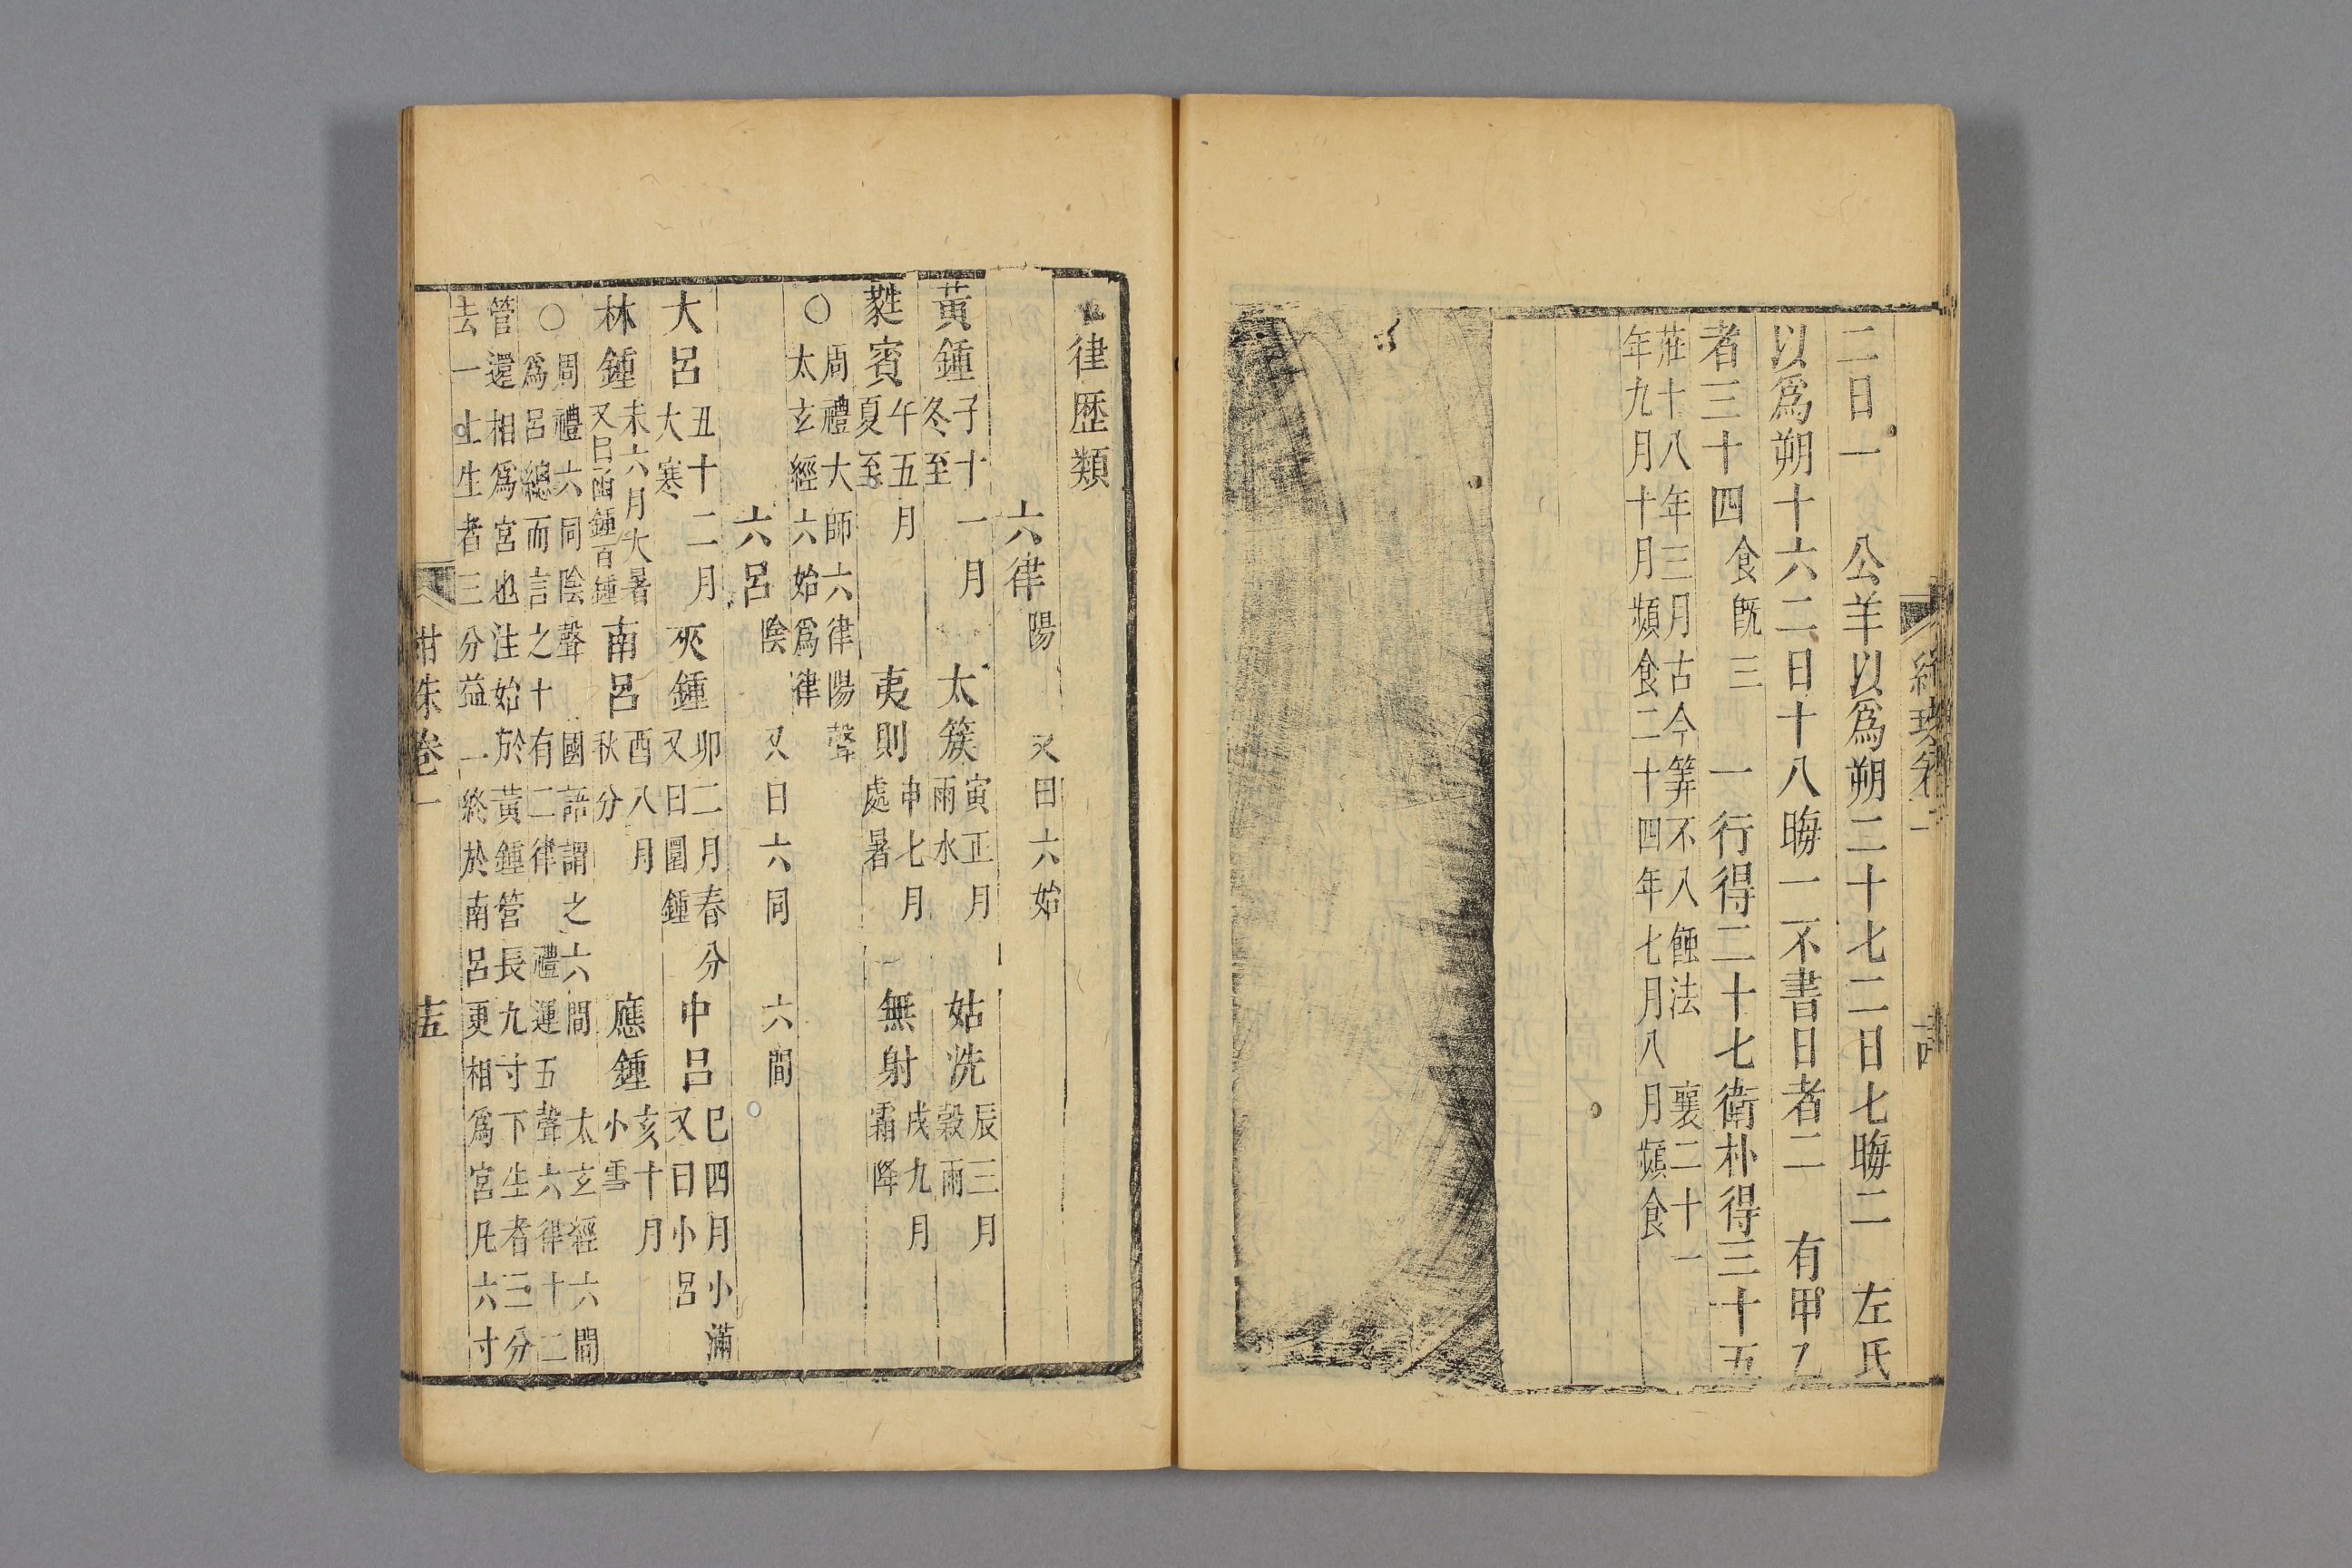 二日一　公羊以爲朔二十七二日七晦二　左氏
以爲朔十六二日十八晦一不書日者二　有甲乙
者三十四食既三　一行得二十七衛朴得三十五
莊十八年三月古今筭不入蝕法　襄二十一
年九月十月頻食二十四年七月八月頻食
律歴類
六律陽　又曰六始
黃鍾子十一月
冬至　太簇寅正月
雨水　姑洗辰三月
穀雨
蕤賓午五月
夏至　夷則申七月
處暑　無射戌九月
霜降
○周禮大師六律陽聲
太玄經六始爲律
六呂陰　又曰六同　六間
大呂丑十二月
大寒　夾鍾卯二月春分
又曰圜鍾　中呂巳四月小滿
又曰小呂
林鍾未六月大暑
又曰函鍾百鍾　南呂酉八月
秋分　應鍾亥十月
小雪
○周禮六同陰聲　國語謂之六間　太玄經六間
爲呂總而言之十有二律　禮運五聲六律十二
管還相爲宮也注始於黃鍾管長九寸下生者三分
去一上生者三分益一終於南呂更相爲宮凡六寸
紺珠卷一
十五